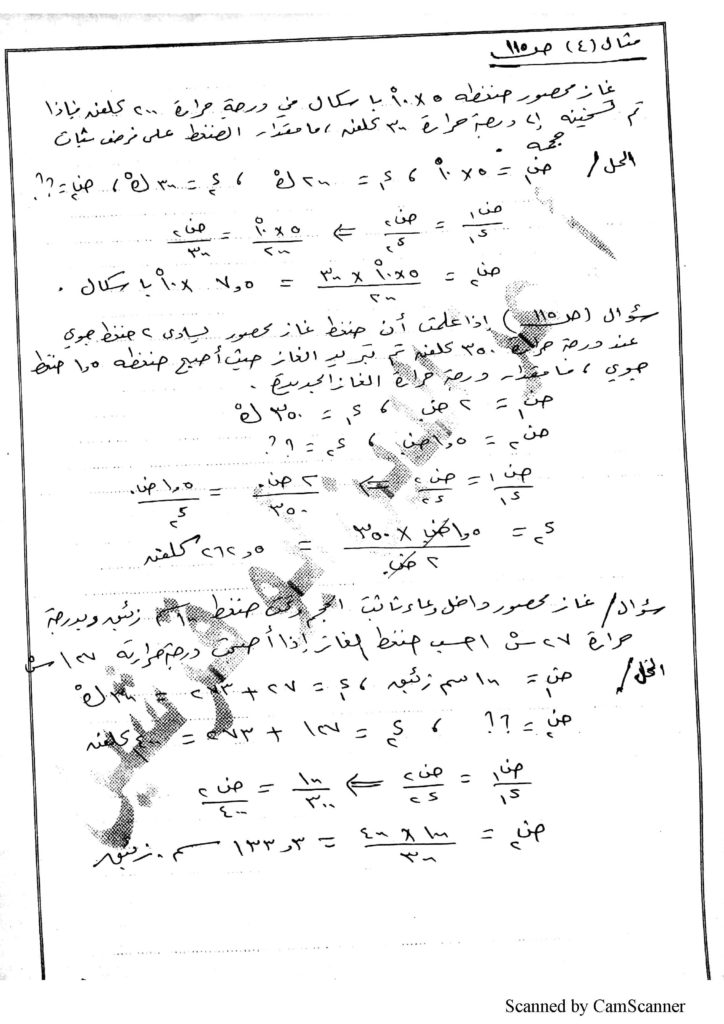 مثال (٤) ص ١١٥
غاز محصور ضغطه ٥ × ١٠^٥ باسكال في درجة حرارة ٢٠٠ كلفنه فإذا
تم تسخينه إلى درجة حرارة ٣٠٠ كلفنه ، ما مقدار الضغط على فرض ثبات
حجمه .
الحل / ض١ = ٥ × ١٠^٥ ، ء١ = ٢٠٠ ك° ، ء٢ = ٣٠٠ ك° ، ض٢ = ??
ض١/ء١ = ض٢/ء٢ ⇐ ٥ × ١٠^٥/٢٠٠ = ض٢/٣٠٠
ض٢ = ٥ × ١٠^٥ × ٣٠٠/٢٠٠ = ٧,٥ × ١٠^٥ باسكال .
سؤال (ص ١١٥) إذا علمت أن ضغط غاز محصور يساوي ٢ ضغط جوي
عند درجة حرارة ٣٥٠ كلفنه تم تبريد الغاز حيث أصبح ضغطه ١,٥ ضغط
جوي ، فما مقدار درجة حرارة الغاز الجديدة .
ض١ = ٢ ض. ، ء١ = ٣٥٠ ك°
ض٢ = ١,٥ ض. ، ء٢ = ??
ض١/ء١ = ض٢/ء٢ ⇐ ٢ ض./٣٥٠ = ١,٥ ض./ء٢
ء٢ = ١,٥ ض. × ٣٥٠/٢ ض. = ٢٦٢,٥ كلفنه
سؤال / غاز محصور داخل وعاء ثابت الحجم وتحت ضغط ١٠٠ سم زئبق وبدرجة
حرارة ٢٧ س° احسب ضغط الغاز إذا أصبحت درجة حرارته ١٢٧ س°
الحل / ض١ = ١٠٠ سم زئبق ، ء١ = ٢٧ + ٢٧٣ = ٣٠٠ ك°
ض٢ = ?? ، ء٢ = ١٢٧ + ٢٧٣ = ٤٠٠ كلفنه
ض١/ء١ = ض٢/ء٢ ⇐ ١٠٠/٣٠٠ = ض٢/٤٠٠
ض٢ = ١٠٠ × ٤٠٠/٣٠٠ = ١٣٣,٣ سم . زئبق
Scanned by CamScanner